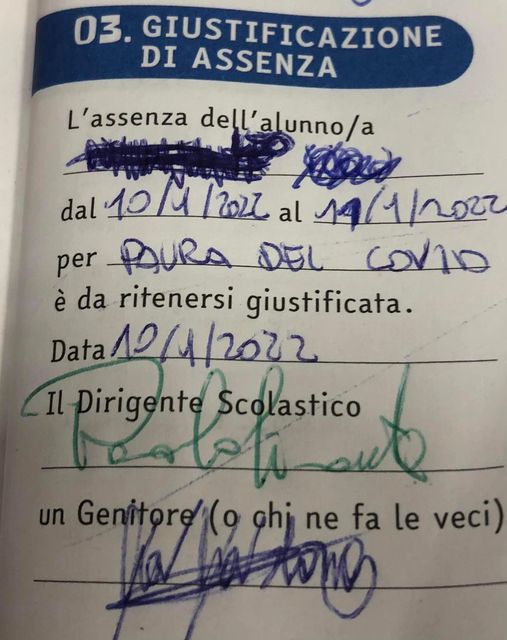 03. GIUSTIFICAZIONE
DI ASSENZA
L'assenza dell'alunno/a
dal 10/1/2022 al 11/1/2022
per PAURA DEL COVID
è da ritenersi giustificata.
Data 10/1/2022
Il Dirigente Scolastico
un Genitore (o chi ne fa le veci)